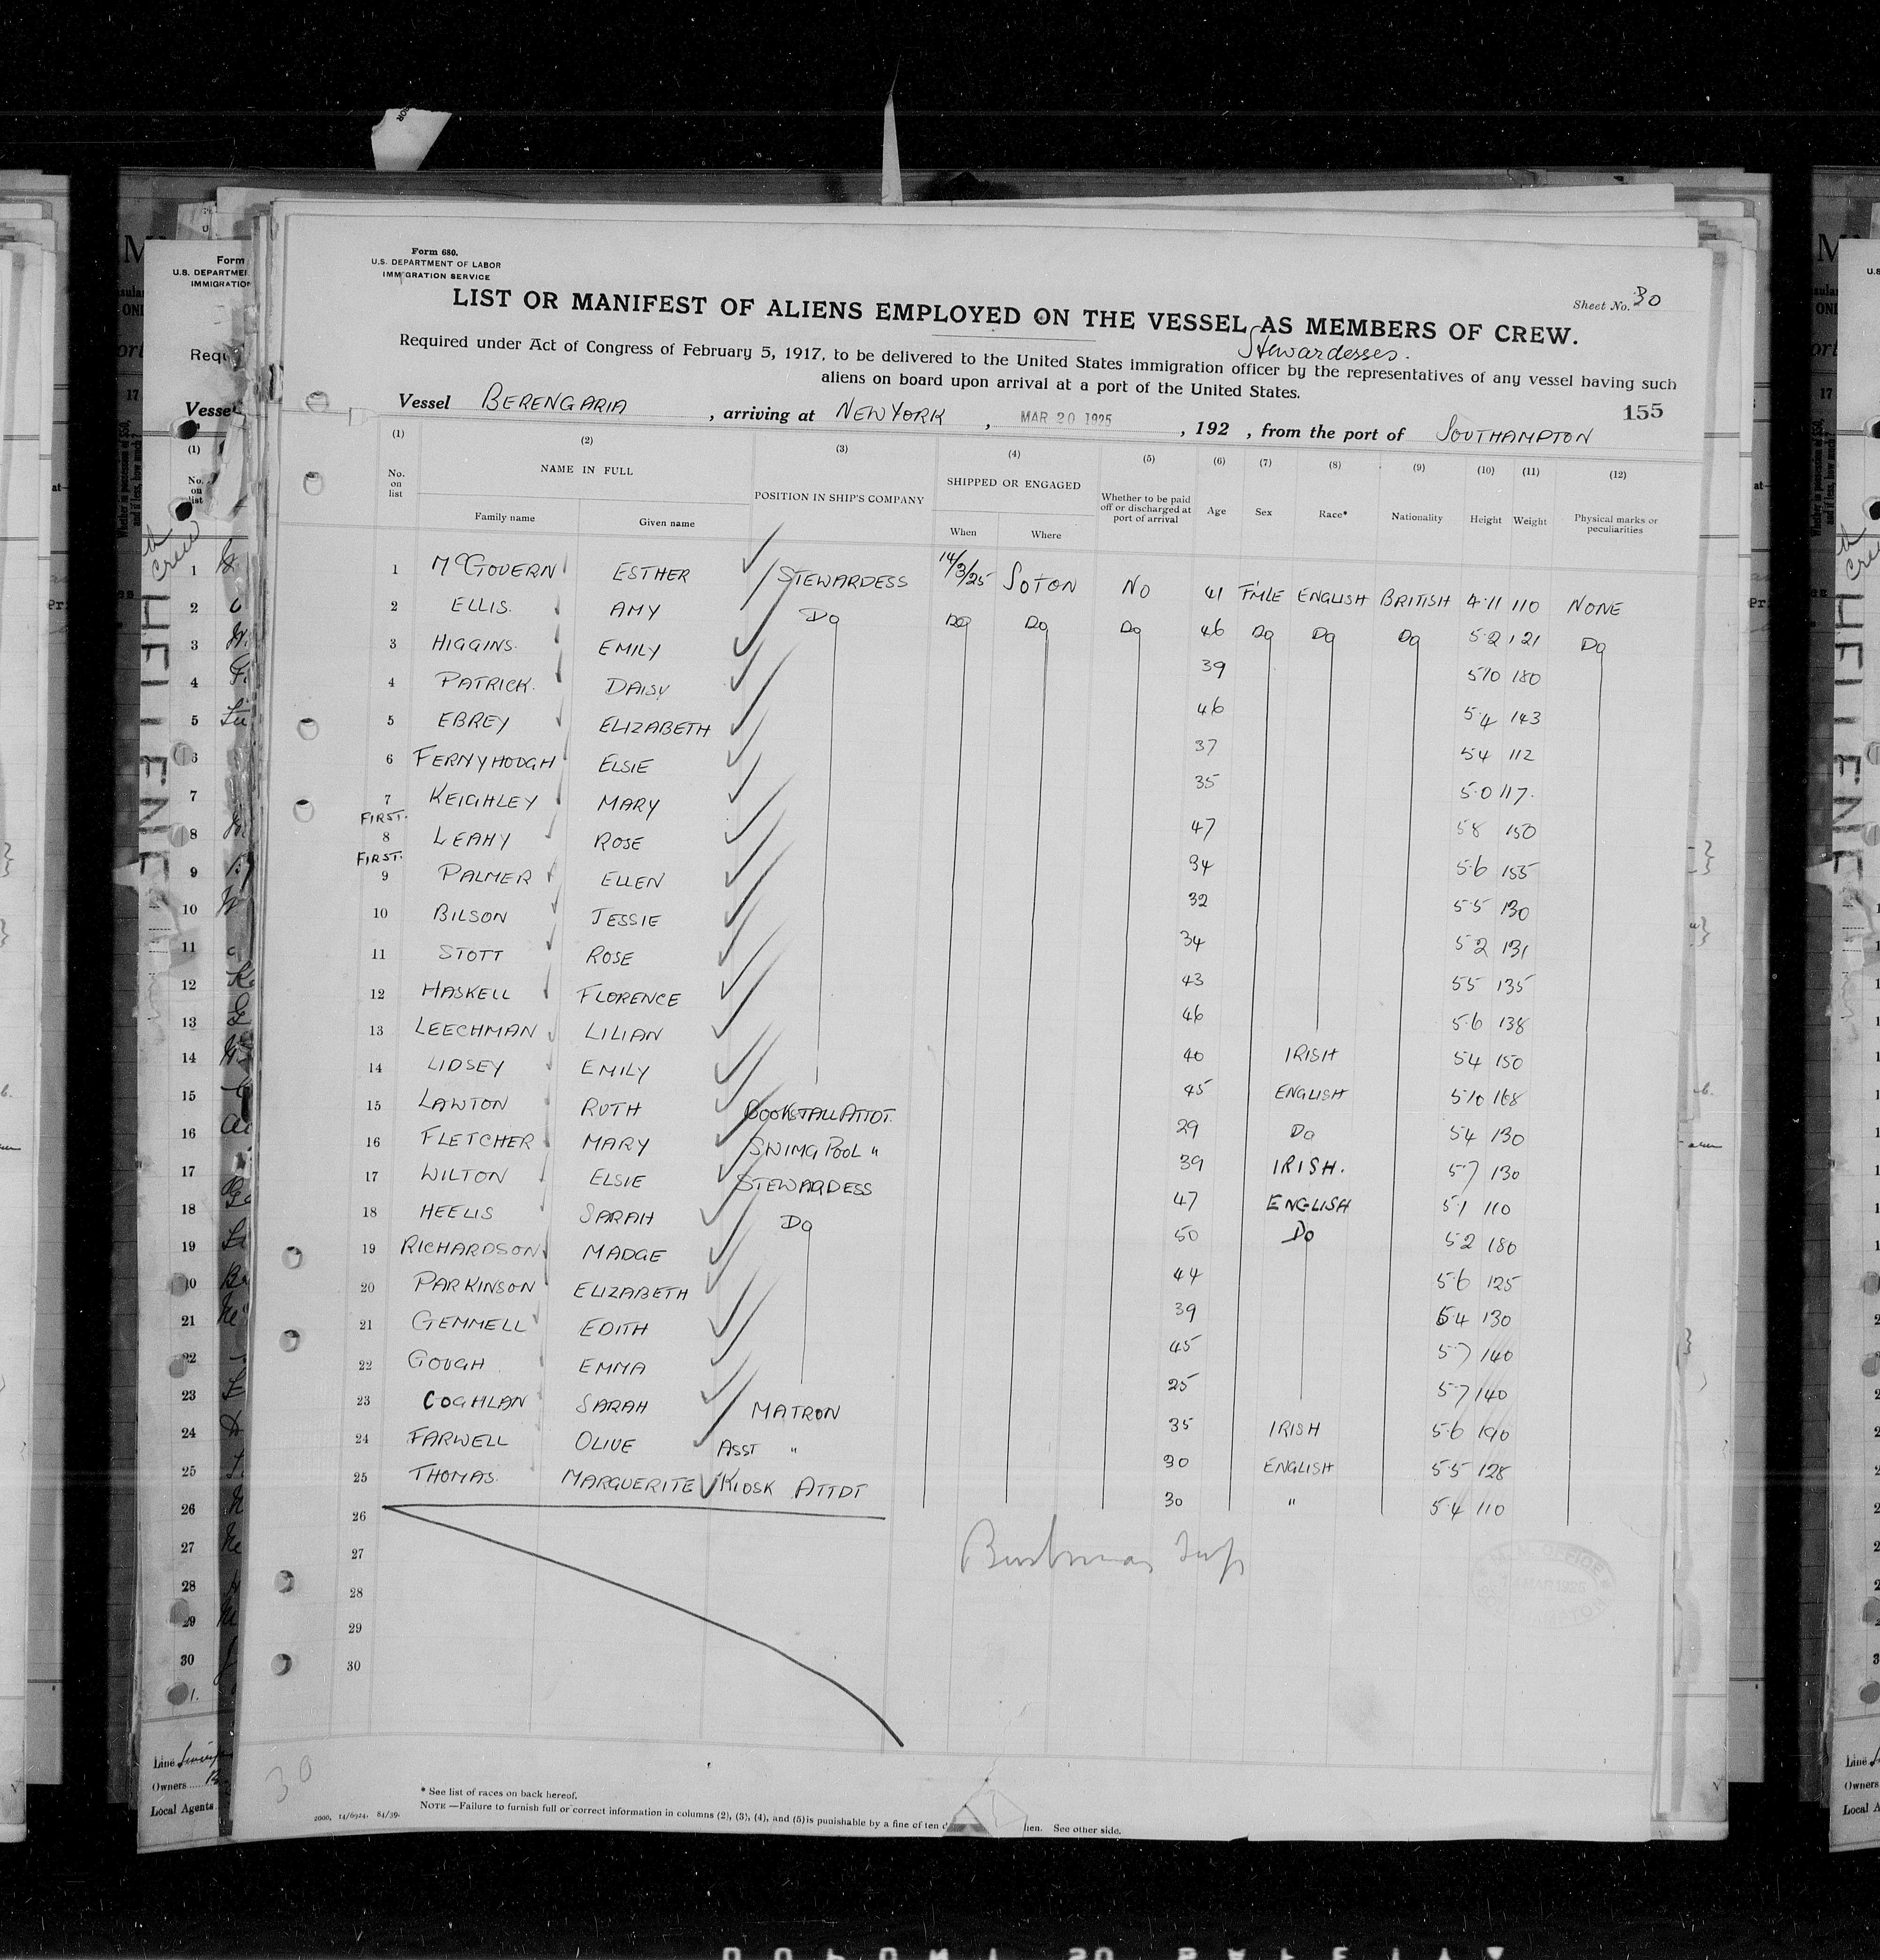 Form 680.
U.S. DEPARTMENT OF LABOR
IMMIGRATION SERVICE
Sheet No. 30
LIST OR MANIFEST OF ALIENS EMPLOYED ON THE VESSEL AS MEMBERS OF CREW.
Stewardesses.
Required under Act of Congress of February 5, 1917, to be delivered to the United States immigration officer by the representatives of any vessel having such
aliens on board upon arrival at a port of the United States.
155
Vessel BERENGARIA, arriving at NEW YORK, MAR 20 1925, 192 , from the port of SOUTHAMPTON
(1) (2) (3) (4) (5) (6) (7) (8) (9) (10) (11) (12)
No. on list NAME IN FULL POSITION IN SHIP'S COMPANY SHIPPED OR ENGAGED Whether to be paid off or discharged at port of arrival Age Sex Race* Nationality Height Weight Physical marks or peculiarities
Family name Given name When Where
1 McGOVERN ESTHER STEWARDESS 14/3/25 SOTON NO 41 F'MLE ENGLISH BRITISH 4.11 110 NONE
2 ELLIS. AMY Do Do Do Do 46 Do Do Do 5.2 121 Do
3 HIGGINS. EMILY 39 5'10 180
4 PATRICK. DAISY 46 5.4 143
5 EBREY ELIZABETH 37 54 112
6 FERNYHOUGH ELSIE 35 5.0 117.
7 KEIGHLEY MARY 47 58 150
FIRST.
8 LEAHY ROSE 34 5.6 155
FIRST.
9 PALMER ELLEN 32 5.5 130
10 BILSON JESSIE 34 5 2 131
11 STOTT ROSE 43 55 135
12 HASKELL FLORENCE 46 5.6 138
13 LEECHMAN LILIAN 40 IRISH 5.4 150
14 LIDSEY EMILY 45 ENGLISH 5'10 168
15 LAWTON RUTH BOOKSTALL ATTDT. 29 Do 54 130
16 FLETCHER MARY SWIMG POOL " 39 IRISH. 5.7 130
17 WILTON ELSIE STEWARDESS 47 ENGLISH 5.1 110
18 HEELIS SARAH Do 50 Do 5.2 180
19 RICHARDSON MADGE 44 5.6 125
20 PARKINSON ELIZABETH 39 5 4 130
21 GEMMELL EDITH 45 5.7 140
22 GOUGH EMMA 25 5.7 140
23 COGHLAN SARAH MATRON 35 IRISH 5.6 190
24 FARWELL OLIVE ASST " 30 ENGLISH 5.5 128
25 THOMAS. MARGUERITE KIOSK ATTDT 30 " 5.4 110
26
27
28
29
30
30
* See list of races on back hereof.
NOTE.—Failure to furnish full or correct information in columns (2), (3), (4), and (5) is punishable by a fine of ten
lien. See other side.
2000. 14/6924. 84/39.